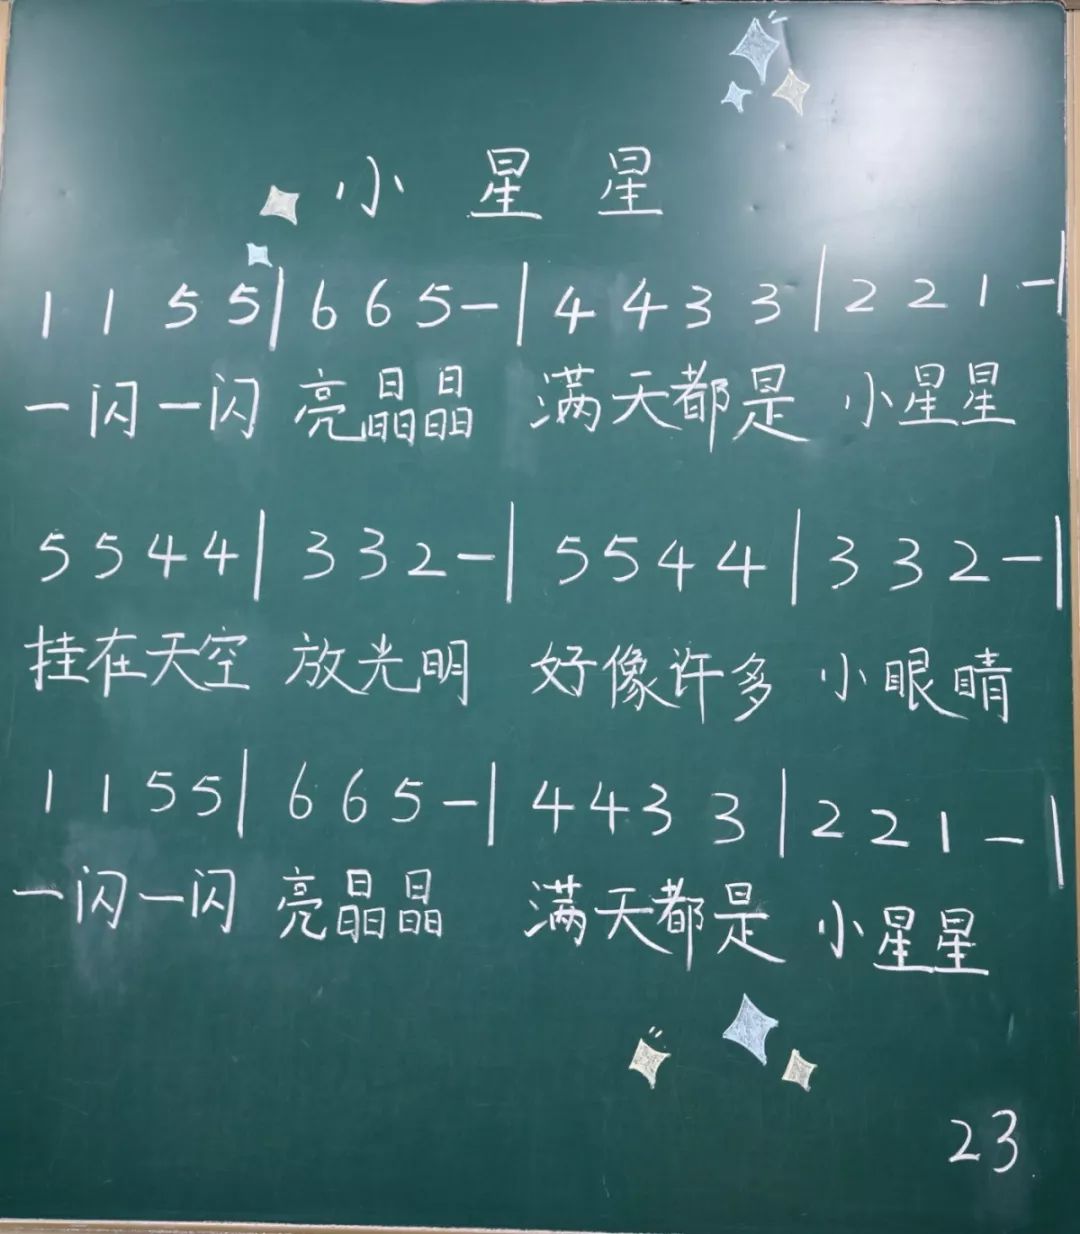 小星星
1 1 5 5 | 6 6 5 – | 4 4 3 3 | 2 2 1 – |
一闪一闪 亮晶晶 满天都是 小星星
5 5 4 4 | 3 3 2 – | 5 5 4 4 | 3 3 2 – |
挂在天空 放光明 好像许多 小眼睛
1 1 5 5 | 6 6 5 – | 4 4 3 3 | 2 2 1 – |
一闪一闪 亮晶晶 满天都是 小星星
23